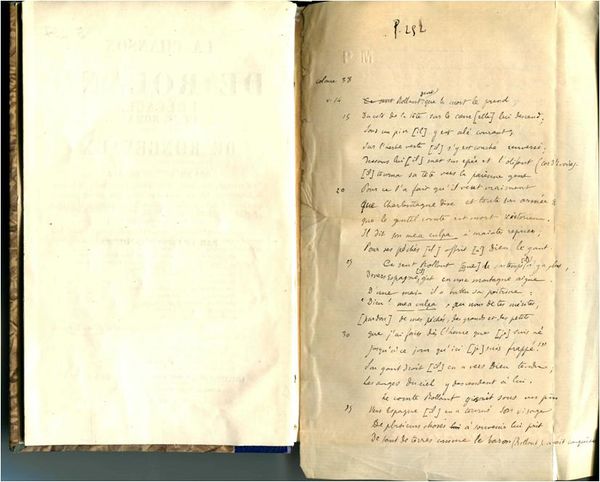 P. 252
colonne 38
v. 14 sent Rollant que la mort le prend;
15 Du côté de la tête sur le cœur [elle] lui descend;
Sous un pin [il] y est allé courant,
Sur l'herbe verte [il] s'y est couché renversé.
Dessous lui [il] met son épée et l'olifant
[il] tourna sa tête vers la païenne gent
20 Pour ce l'a fait qu'il veut vraiment
que Charlemagne dise et toute son armée
que le gentil comte est mort victorieux.
Il dit son mea culpa à maintes reprises,
Pour ses péchés [il] offrit [à] Dieu le gant
25 Ce sent Rollant [que] de temps il n'y a plus,
Devers Espagne, gît en une montagne aiguë.
D'une main il a battu sa poitrine.
"Dieu! mea culpa,
[pardon] de mes péchés, des grands et des petits
30 que j'ai faits dès l'heure que [je] suis né
jusqu'à ce jour qu'ici [je] suis frappé!"
Son gant droit [il] en a vers Dieu tendu;
Les anges du ciel y descendent à lui.
Le comte Rollant gisait sous un pin
35 Vers Espagne [il] en a tourné son visage
De plusieurs choses à souvenir lui prit
De tant de terres comme le baron